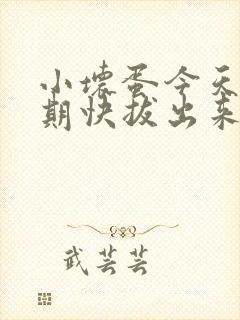 小壞蛋今天
期快拔出来
武芸芸